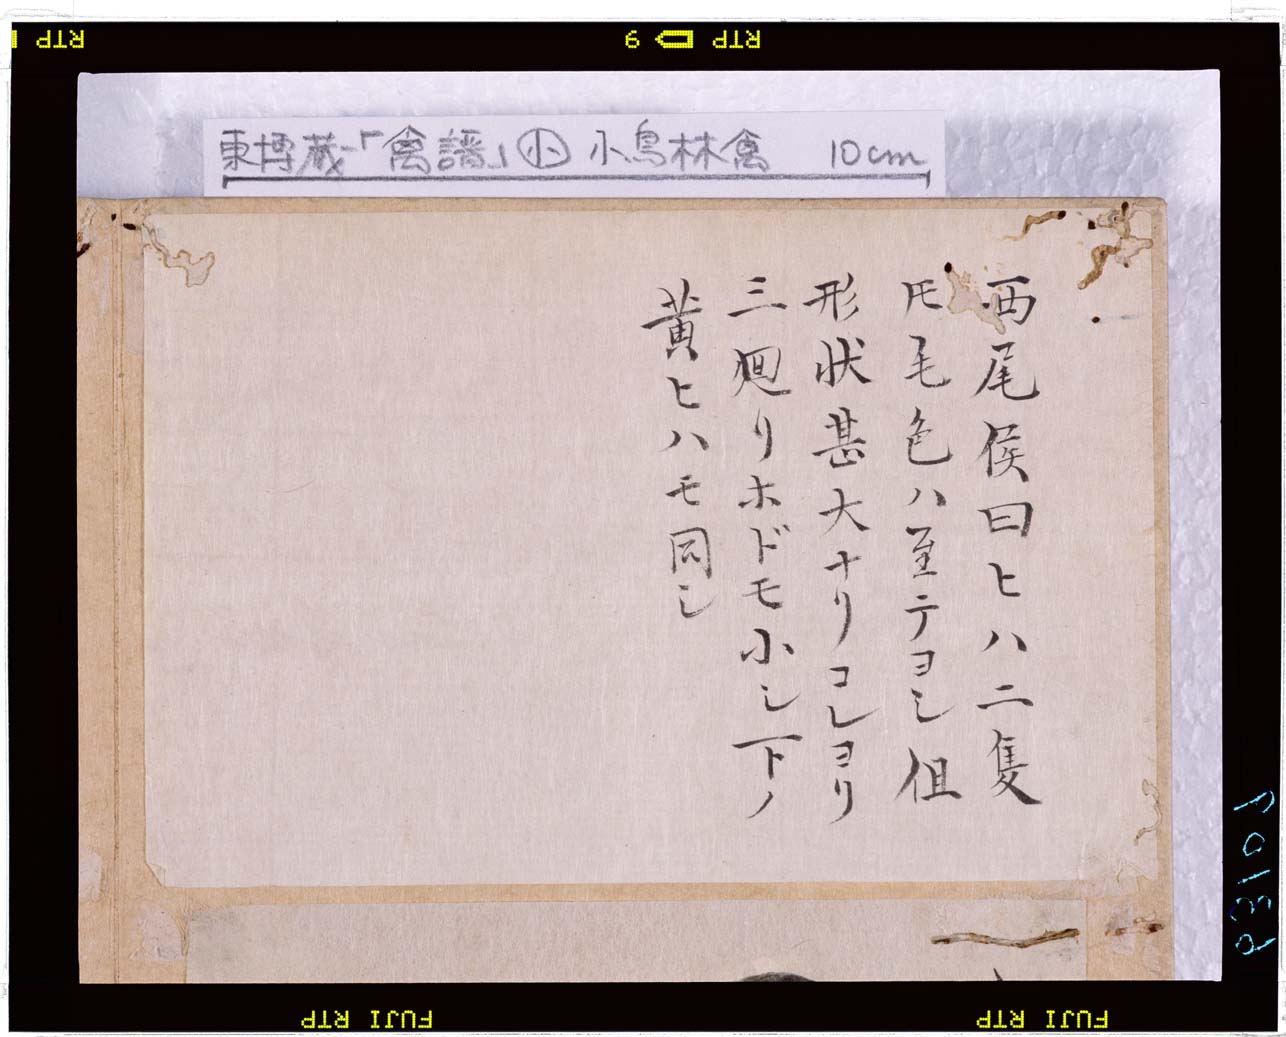 RTP 9 RTP
東博蔵「禽譜」㊥ 小鳥林禽 10cm
西尾侯曰ヒハ二隻
𪜈毛色ハ至テヨシ但
形状甚大ナリコレヨリ
三廻リホドモ小シ下ノ
黄ヒハモ同シ
FUJI RTP FUJI RTP